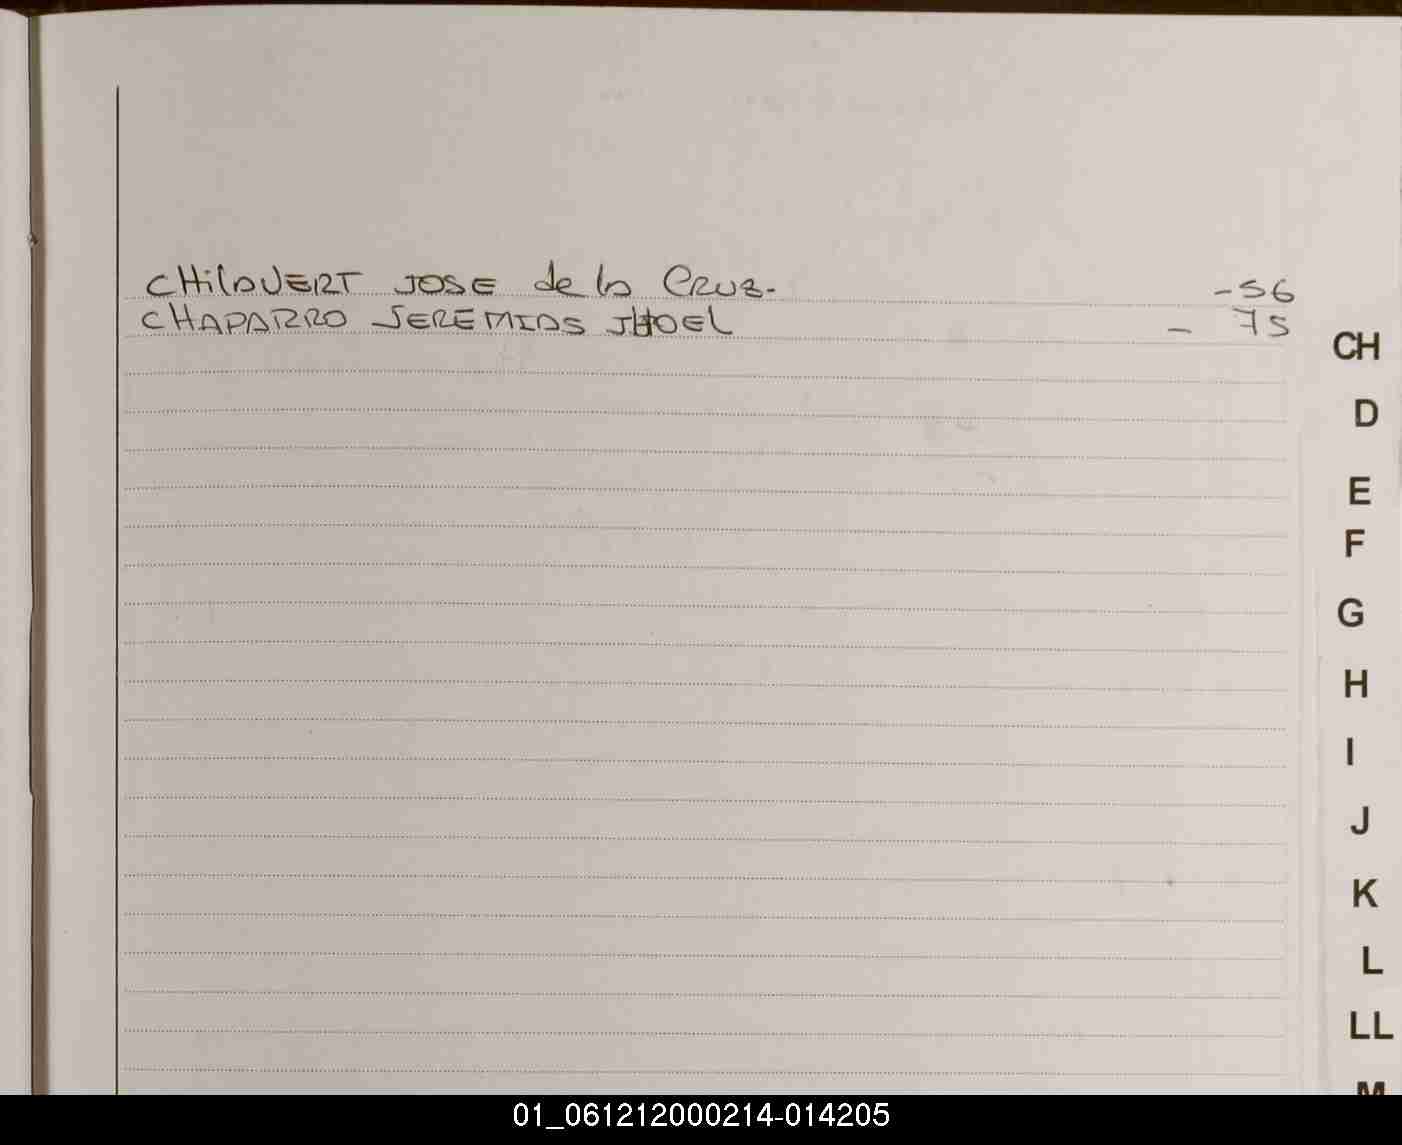 CHILAVERT JOSE de la CRUZ. -56
CHAPARRO JEREMIAS JHOEL - 75
CH
D
E
F
G
H
I
J
K
L
LL
M
01_061212000214-014205